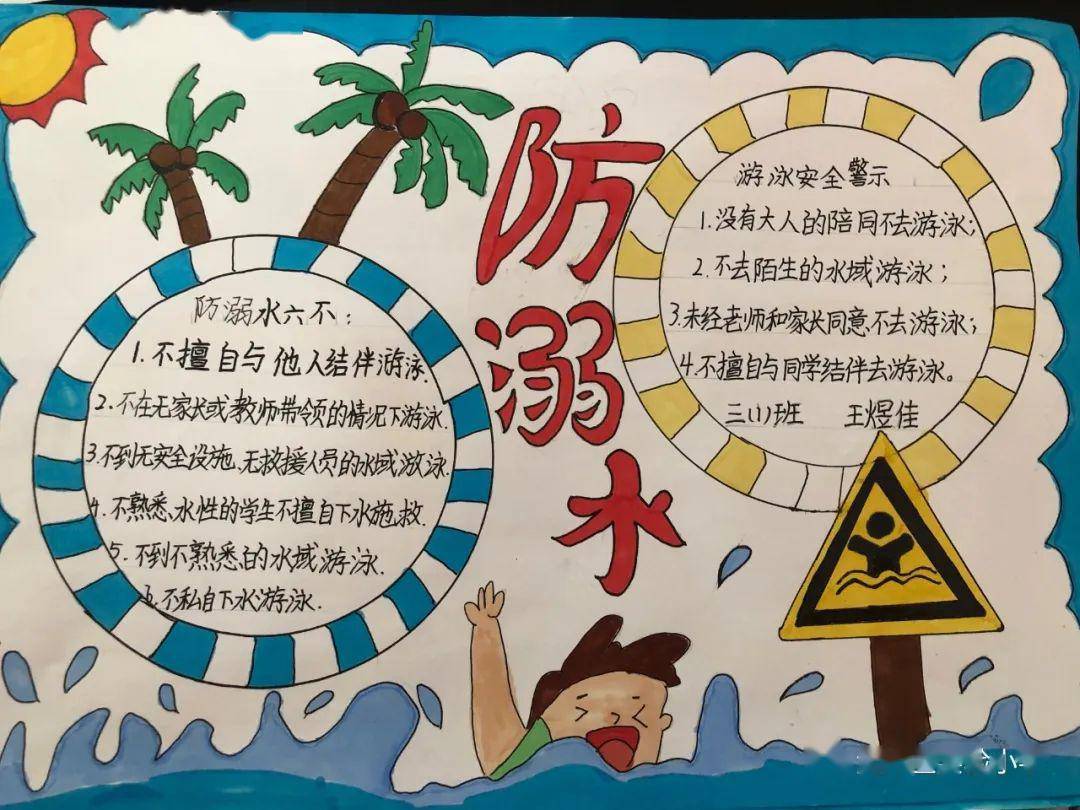 防溺水
防溺水六不：
1.不擅自与他人结伴游泳.
2.不在无家长或教师带领的情况下游泳.
3.不到无安全设施、无救援人员的水域游泳.
4.不熟悉水性的学生不擅自下水施救.
5.不到不熟悉的水域游泳.
6.不私自下水游泳.
游泳安全警示
1.没有大人的陪同不去游泳；
2.不去陌生的水域游泳；
3.未经老师和家长同意不去游泳；
4.不擅自与同学结伴去游泳。
三(1)班 王煜佳